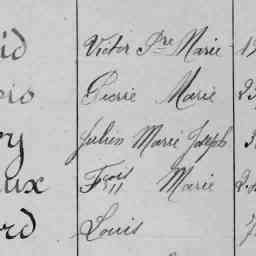 id Victor Pre Marie 1
ers Pierre Marie 2
y Julien Marie Joseph
ux Fçois Marie 2
ord Louis